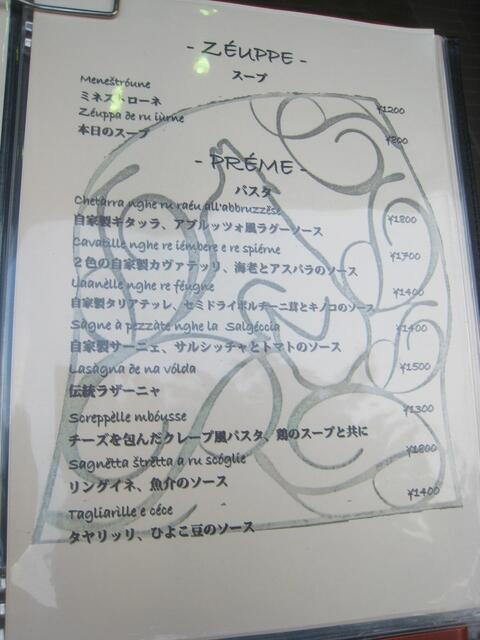 - ZÉUPPE -
スープ
Meneštróune ¥1200
ミネストローネ
Zéuppa de ru iùrne ¥800
本日のスープ
- PRÉME -
パスタ
Chetàrra nghe ru raéu all'abbruzzëse ¥1800
自家製キタッラ、アブルッツォ風ラグーソース
Cavatille nghe re iémbere e re spiérne ¥1700
2色の自家製カヴァテッリ、海老とアスパラのソース
Laanèlle nghe re féugne ¥1400
自家製タリアテッレ、セミドライポルチーニ茸とキノコのソース
Sàgne à pezzàte nghe la Salgéccia ¥1400
自家製サーニェ、サルシッチャとトマトのソース
Lasàgna de na vólda ¥1500
伝統ラザーニャ
Screppèlle mbóusse ¥1300
チーズを包んだクレープ風パスタ、鶏のスープと共に
Sagnëtta štrëtta a ru scóglie ¥1800
リングイネ、魚介のソース
Tagliarìlle e céce ¥1400
タヤリッリ、ひよこ豆のソース